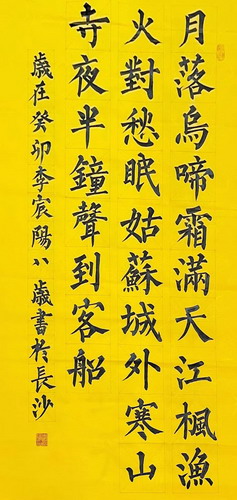 月落烏啼霜滿天江楓漁
火對愁眠姑蘇城外寒山
寺夜半鐘聲到客船
歲在癸卯季宸陽八歲書於長沙